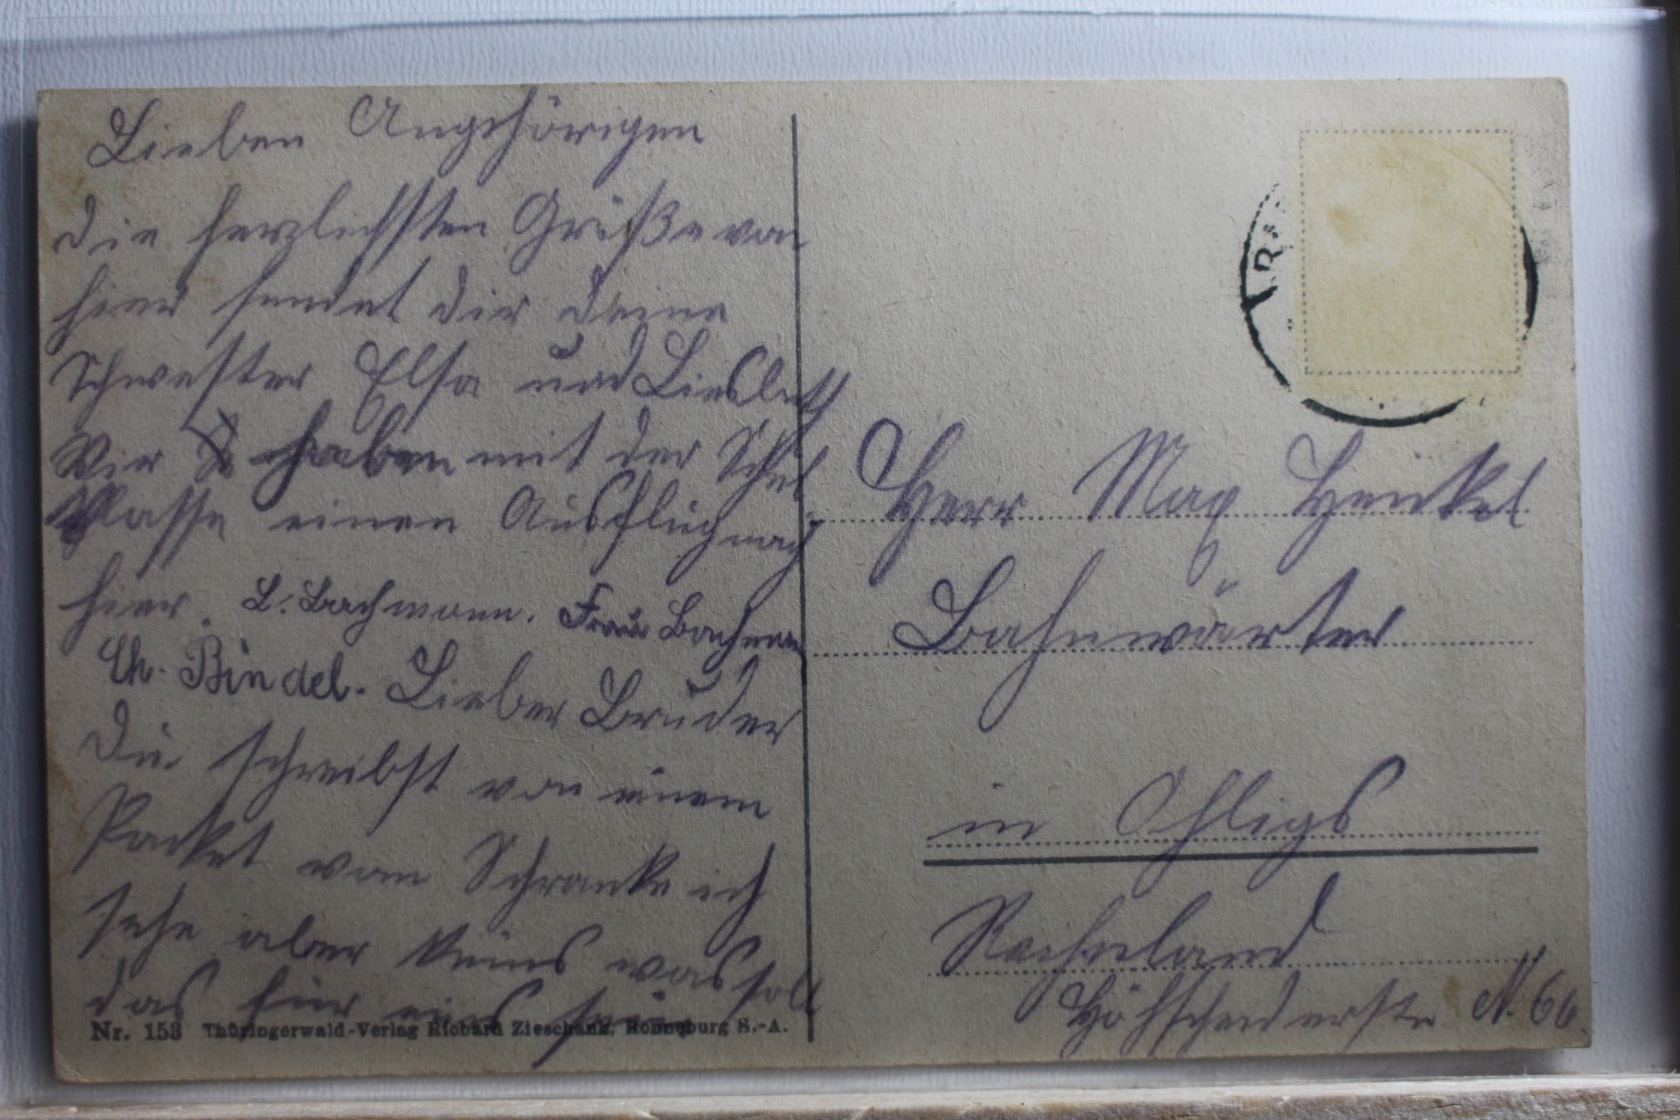 Lieben Angehörigen
die herzlichsten Grüße von
hier sendet dir deine
Schwester Elsa und Liesbeth
Wir haben mit der Schul
Klasse einen Ausflug nach
hier. L. Bachmann. Frau Bachmann
Ch. Bindel. Lieber Bruder
Du schreibst von einem
Packet vom Schranke ich
sehe aber keins was soll
das für eins sein
Nr. 153 Thüringerwald-Verlag Richard Zieschank, Ronneburg S.-A.
Herr Max Henkel
Bahnwärter
in Ohligs
Reihnland
Höhscheiderstr N. 66